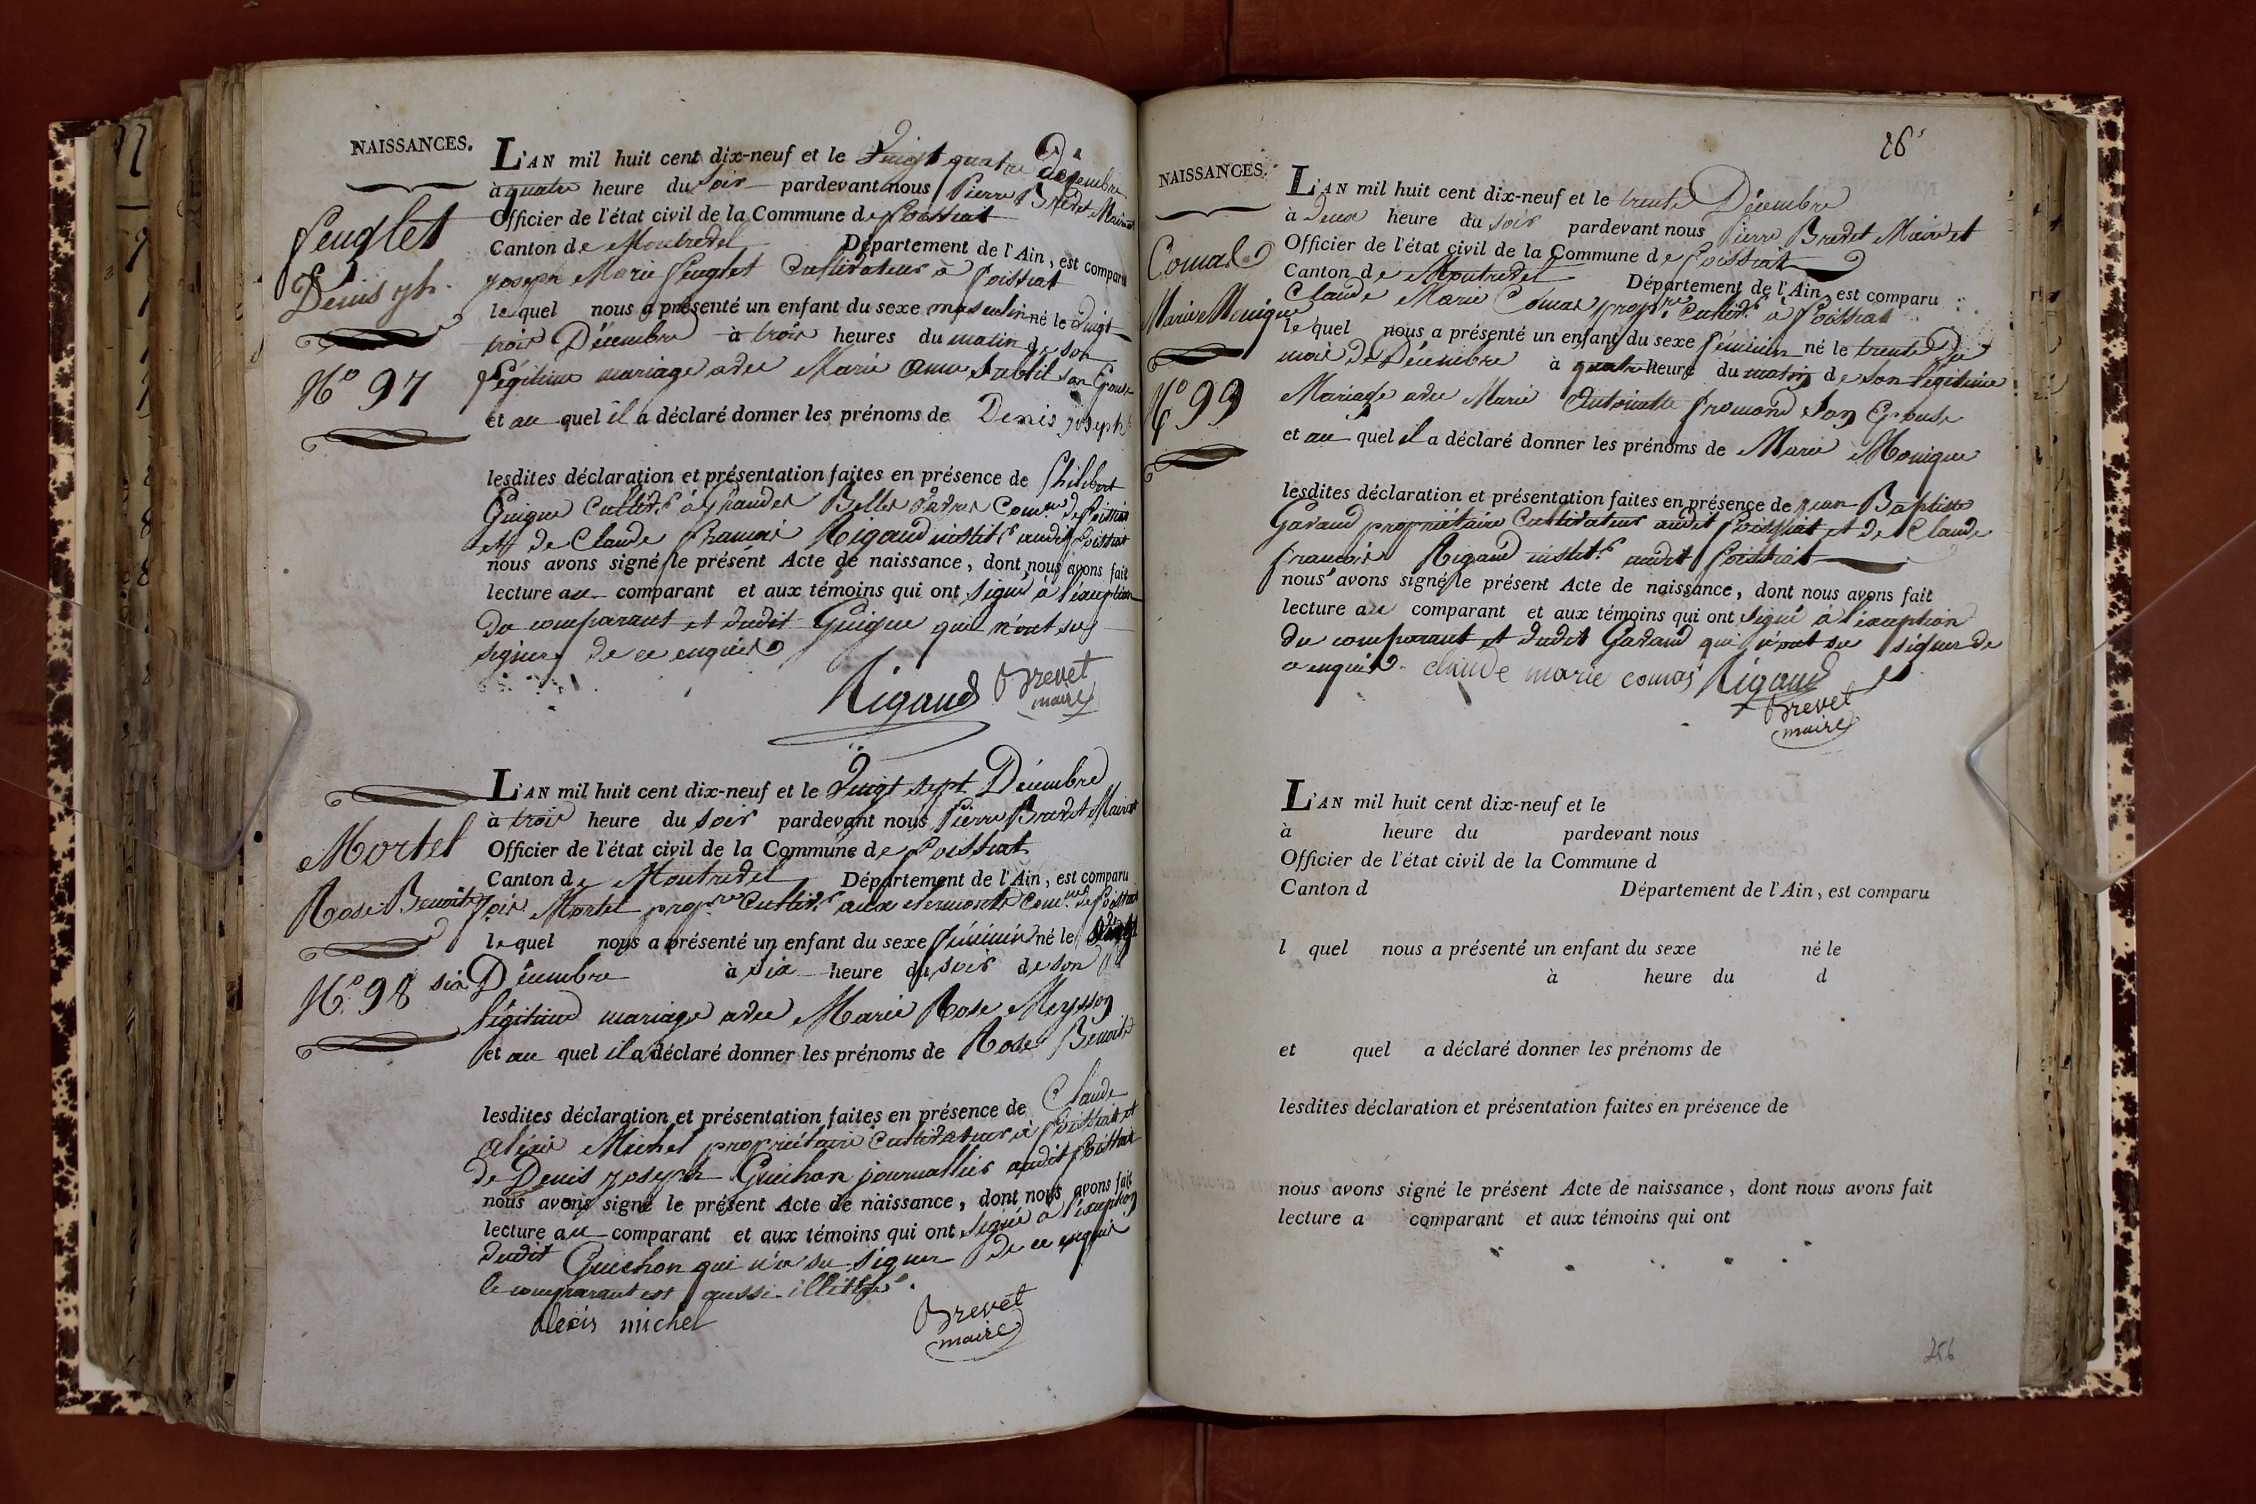 NAISSANCES.
Feuglet
Denis jh.
N° 97
L'AN mil huit cent dix-neuf et le Vingt quatre Décembre
à quatre heure du soir pardevant nous Pierre Brevet Maire et
Officier de l'état civil de la Commune de Poissiat
Canton de Montrevel Département de l'Ain, est comparu
joseph Marie feuglet Cultivateur à Poissiat
lequel nous a présenté un enfant du sexe masculin né le Vingt
trois Décembre à trois heures du matin de son
légitime mariage avec Marie Anne son Epouse
et au quel il a déclaré donner les prénoms de Denis joseph
lesdites déclaration et présentation faites en présence de Philibert
Guigue Cultivr à Grandes Belles Com.ne de Poissiat
et de Claude françois Rigaud institr audit Poissiat
nous avons signé le présent Acte de naissance, dont nous avons fait
lecture au comparant et aux témoins qui ont signé à l'éxception
du comparant et dudit Guigue qui n'ont su
signer de ce enquis
Rigaud Brevet
maire
Mortel
Rose Benoite
N° 98
L'AN mil huit cent dix-neuf et le Vingt sept Décembre
à trois heure du soir pardevant nous Pierre Brevet Maire et
Officier de l'état civil de la Commune de Poissiat
Canton de Montrevel Département de l'Ain, est comparu
Mortel propre Cultivr aux Com.ne de Poissiat
lequel nous a présenté un enfant du sexe féminin né le Vingt
six Décembre à six heure du soir de son
légitime mariage avec Marie Rose Meysson
et au quel il a déclaré donner les prénoms de Rose Benoite
lesdites déclaration et présentation faites en présence de Claude
Aléxis Michel propriétaire Cultivateur à Poissiat et
de Denis joseph Guichon journallier audit Poissiat
nous avons signé le présent Acte de naissance, dont nous avons fait
lecture au comparant et aux témoins qui ont signé à l'éxception
dudit Guichon qui n'a su signer de ce enquis
le comparant est aussi illitéré.
Alexis michel
Brevet
maire
26
NAISSANCES.
Comas
Marie Monique
N° 99
L'AN mil huit cent dix-neuf et le trente Décembre
à Deux heure du soir pardevant nous Pierre Brevet Maire et
Officier de l'état civil de la Commune de Poissiat
Canton de Montrevel Département de l'Ain, est comparu
Claude Marie Comas propre Cultivr à Poissiat
lequel nous a présenté un enfant du sexe féminin né le trente Du
mois de Décembre à quatre heure du matin de son légitime
Mariage avec Marie Antoinette fromond son Epouse
et au quel il a déclaré donner les prénoms de Marie Monique
lesdites déclaration et présentation faites en présence de jean Baptiste
Gavand propriétaire Cultivateur audit Poissiat et de Claude
françois Rigaud institr audit Poissiat
nous avons signé le présent Acte de naissance, dont nous avons fait
lecture au comparant et aux témoins qui ont signé à l'éxception
du comparant et dudit Gavand qui n'ont su signer de
ce enquis. claude marie comas Rigaud
Brevet
maire
L'AN mil huit cent dix-neuf et le
à heure du pardevant nous
Officier de l'état civil de la Commune d
Canton d Département de l'Ain, est comparu
l quel nous a présenté un enfant du sexe né le
à heure du d
et quel a déclaré donner les prénoms de
lesdites déclaration et présentation faites en présence de
nous avons signé le présent Acte de naissance, dont nous avons fait
lecture a comparant et aux témoins qui ont
256